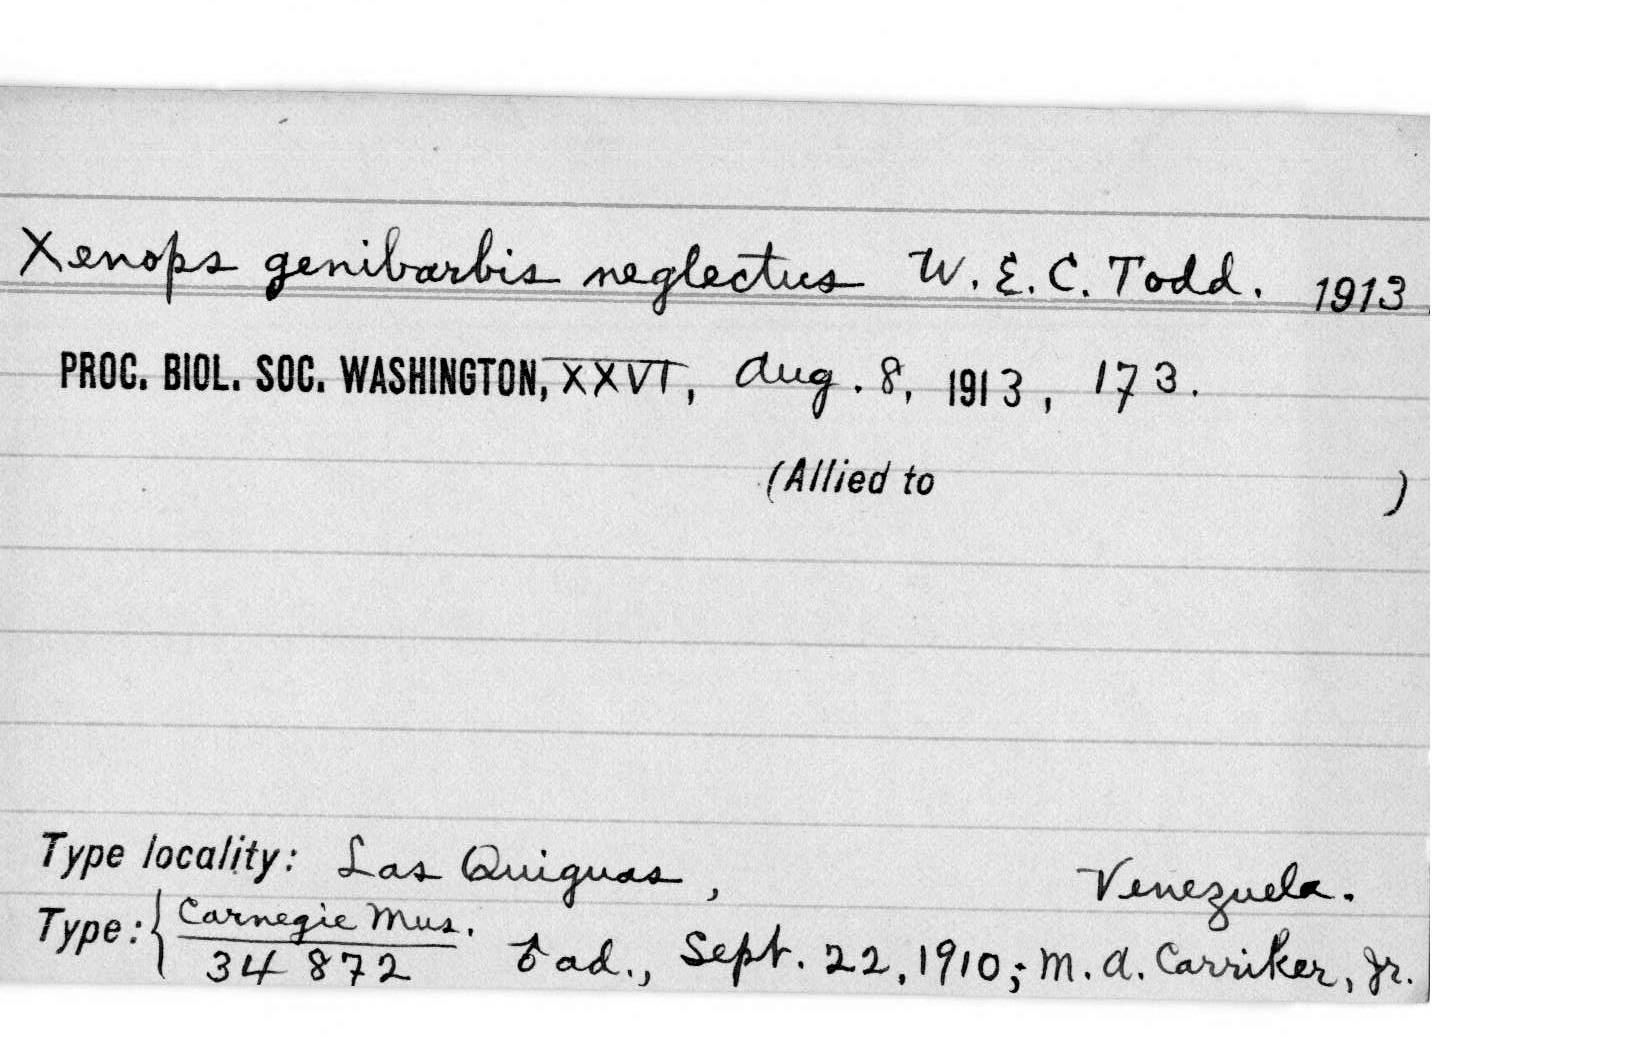 Xenops genibarbis neglectus W. E. C. Todd. 1913
PROC. BIOL. SOC. WASHINGTON, XXVI, Aug. 8, 1913, 173.
(Allied to )
Type locality: Las Quiguas, Venezuela.
Type: { Carnegie Mus.
34872 ♂ ad., Sept. 22, 1910; M. A. Carriker, Jr.